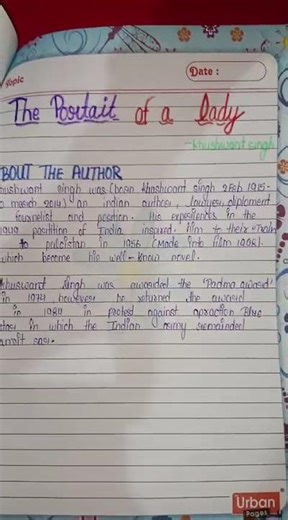 Topic
Date :
The Poortait of a lady
-khushwant singh
BOUT THE AUTHOR
hushwant singh was (boan khashwant singh 2 Feb 1915-
march 2014) an indian author, lawyer, diploment
journelist and
His expriences in the
1947 of India insured him to their "Train
to pakistan in 1956 (Made into film 1998).
which become his well-know novel.
khuswant singh was awarded the "Padma award"
in 1974, however he returned the award
in 1984 in protest against opraction Blue
star in which the Indian army remained
Urban
Pages